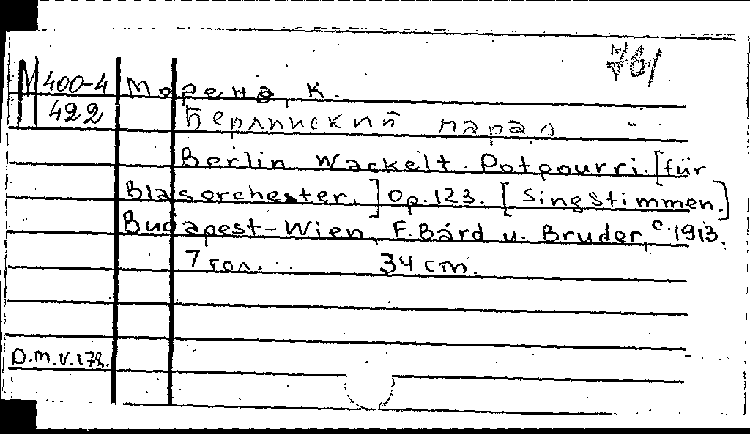 761
М 400-4 Морена, К.
422 Берлинский парад
Berlin Wackelt. Potpourri. [für
Blasorchester.] Op. 123. [Singstimmen.]
Budapest-Wien, F. Bárd u. Bruder, c. 1913.
7 гол. 34 cm.
D.M.V. 178.